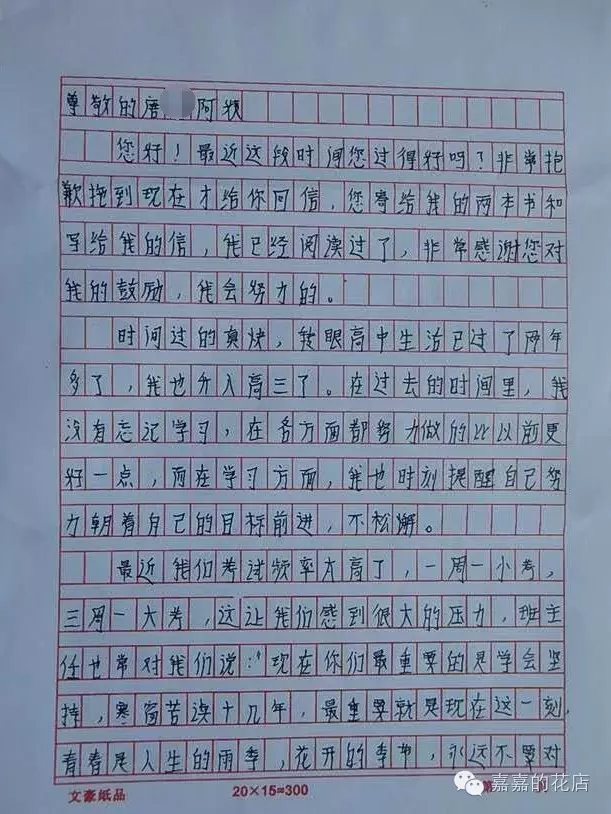 尊敬的唐 阿姨
您好！最近这段时间您过得好吗？非常抱
歉拖到现在才给你回信，您寄给我的两本书和
写给我的信，我已经阅读过了，非常感谢您对
我的鼓励，我会努力的。
时间过的真快，转眼高中生活已过了两年
多了，我也升入高三了。在过去的时间里，我
没有忘记学习，在各方面都努力做的比以前更
好一点，而在学习方面，我也时刻提醒自己努
力朝着自己的目标前进，不松懈。
最近我们考试频率太高了，一周一小考，
三周一大考，这让我们感到很大的压力，班主
任也常对我们说：“现在你们最重要的是学会坚
持，寒窗苦读十几年，最重要就是现在这一刻，
青春是人生的雨季，花开的季节，永远不要对
文豪纸品 20×15=300 第
嘉嘉的花店